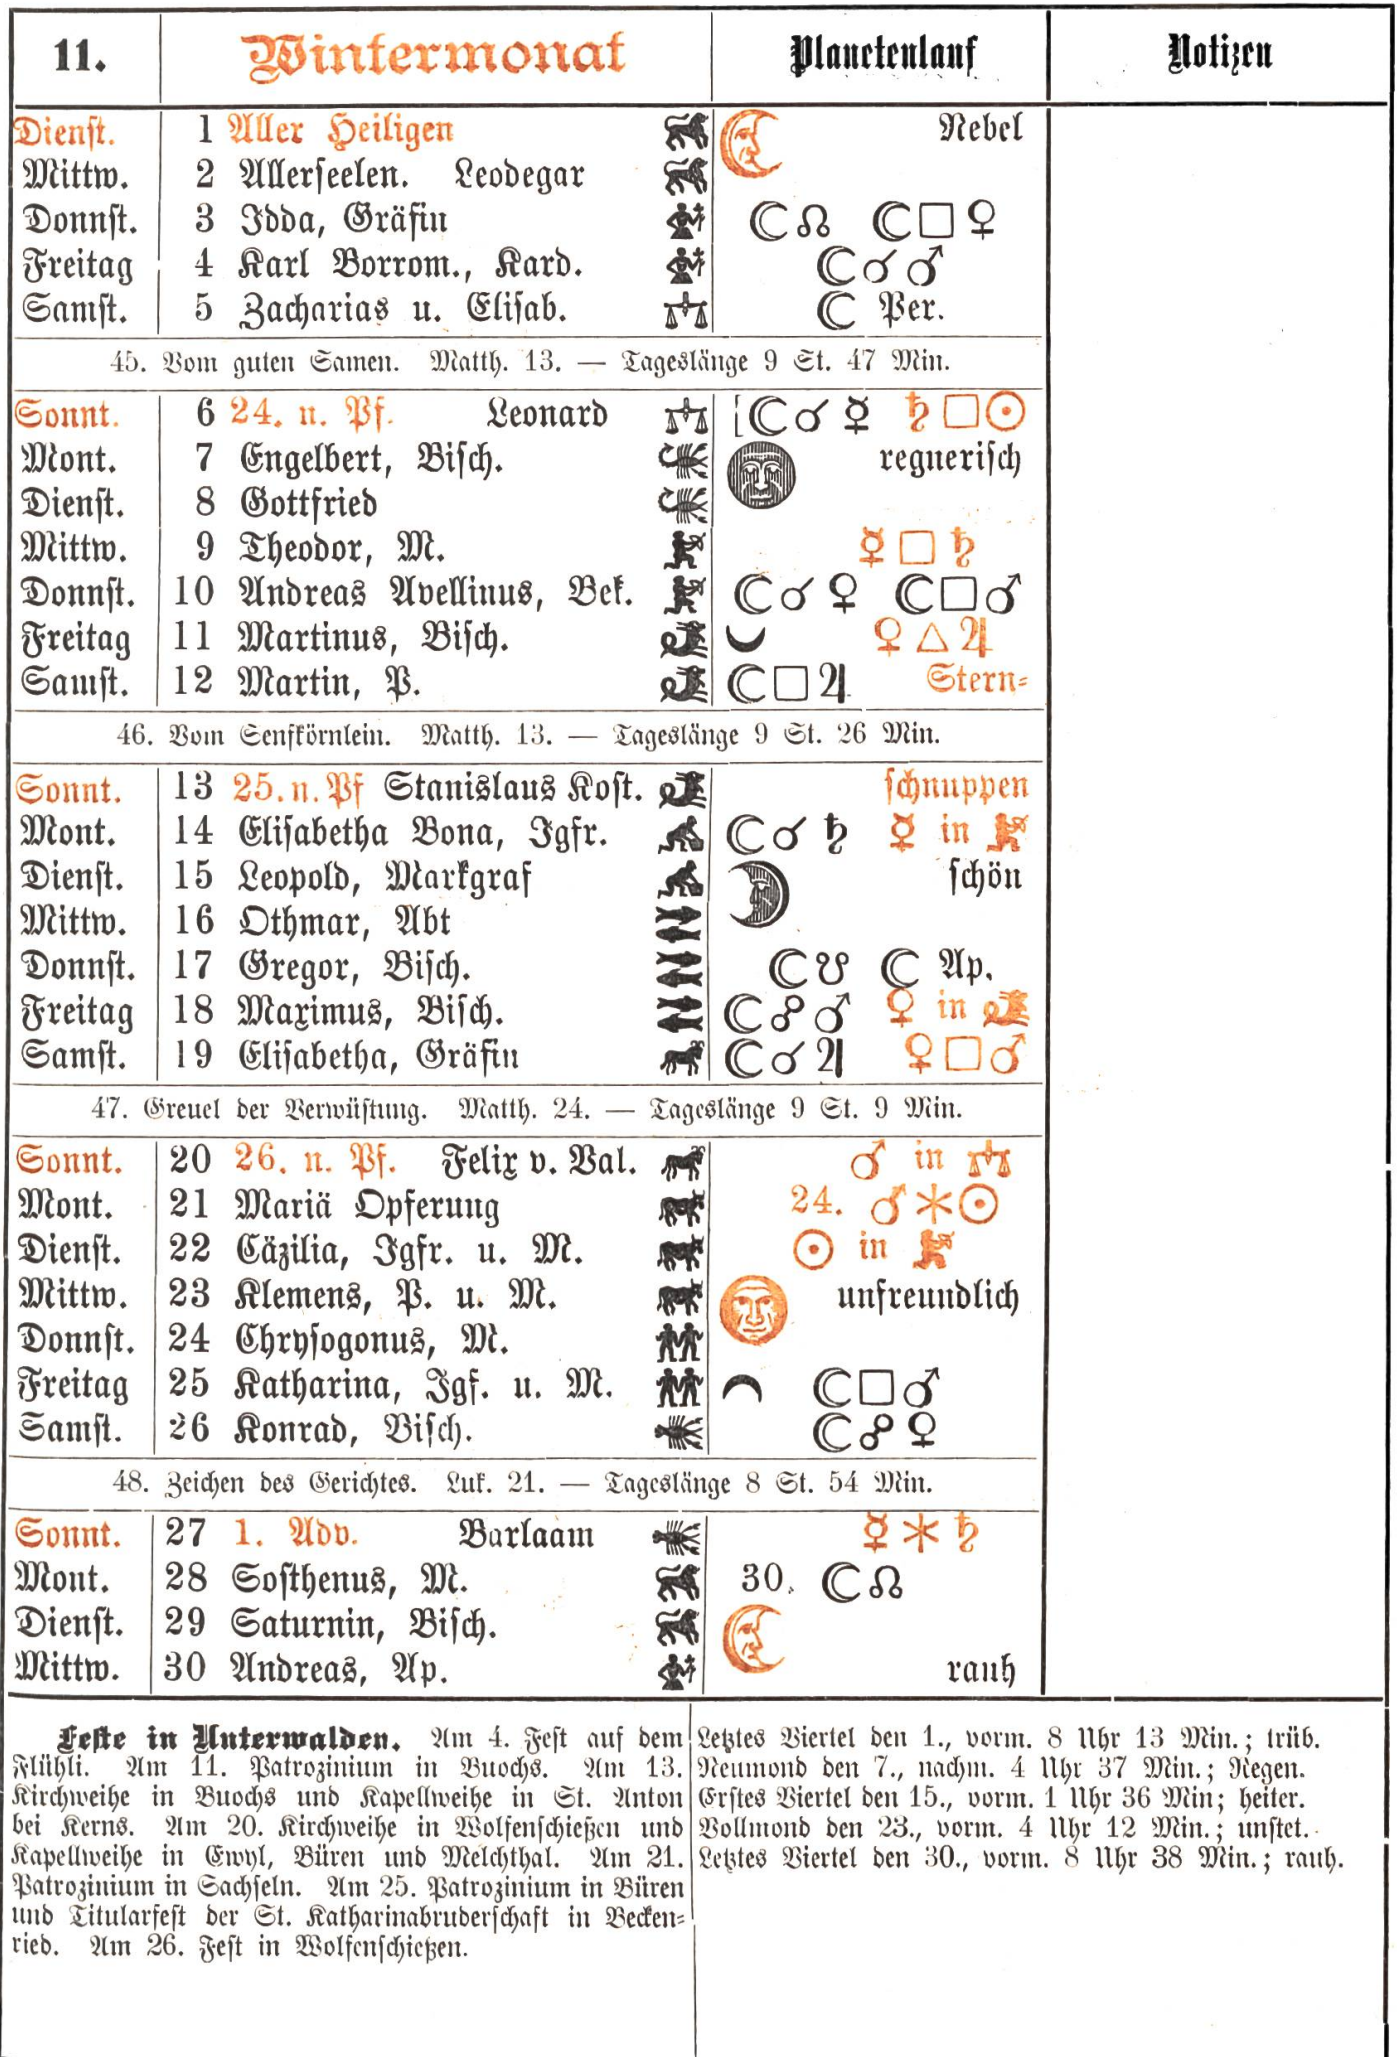 11. Wintermonat Planetenlauf Notizen
Dienst. 1 Aller Heiligen Nebel
Mittw. 2 Allerseelen. Leodegar
Donnst. 3 Idda, Gräfin ☾☊ ☾□♀
Freitag 4 Karl Borrom., Kard. ☾☌♂
Samst. 5 Zacharias u. Elisab. ☾ Per.
45. Vom guten Samen. Matth. 13. — Tageslänge 9 St. 47 Min.
Sonnt. 6 24. n. Pf. Leonard [☾☌☿ ♄□☉
Mont. 7 Engelbert, Bisch. regnerisch
Dienst. 8 Gottfried
Mittw. 9 Theodor, M. ☿□♄
Donnst. 10 Andreas Avellinus, Bek. ☾☌♀ ☾□♂
Freitag 11 Martinus, Bisch. ♀△♃
Samst. 12 Martin, P. ☾□♃ Stern-
46. Vom Senfkörnlein. Matth. 13. — Tageslänge 9 St. 26 Min.
Sonnt. 13 25. n. Pf Stanislaus Kost. schnuppen
Mont. 14 Elisabetha Bona, Igfr. ☾☌♄ ☿ in
Dienst. 15 Leopold, Markgraf schön
Mittw. 16 Othmar, Abt
Donnst. 17 Gregor, Bisch. ☾☋ ☾ Ap.
Freitag 18 Maximus, Bisch. ☾☍♂ ♀ in
Samst. 19 Elisabetha, Gräfin ☾☌♃ ♀□♂
47. Greuel der Verwüstung. Matth. 24. — Tageslänge 9 St. 9 Min.
Sonnt. 20 26. n. Pf. Felix v. Val. ♂ in
Mont. 21 Mariä Opferung 24. ♂⚹☉
Dienst. 22 Cäzilia, Igfr. u. M. ☉ in
Mittw. 23 Klemens, P. u. M. unfreundlich
Donnst. 24 Chrysogonus, M.
Freitag 25 Katharina, Igf. u. M. ☾□♂
Samst. 26 Konrad, Bisch. ☾☍♀
48. Zeichen des Gerichtes. Luk. 21. — Tageslänge 8 St. 54 Min.
Sonnt. 27 1. Adv. Barlaam ☿⚹♄
Mont. 28 Sosthenus, M. 30. ☾☊
Dienst. 29 Saturnin, Bisch.
Mittw. 30 Andreas, Ap. rauh
Feste in Unterwalden. Am 4. Fest auf dem
Flühli. Am 11. Patrozinium in Buochs. Am 13.
Kirchweihe in Buochs und Kapellweihe in St. Anton
bei Kerns. Am 20. Kirchweihe in Wolfenschießen und
Kapellweihe in Ewyl, Büren und Melchthal. Am 21.
Patrozinium in Sachseln. Am 25. Patrozinium in Büren
und Titularfest der St. Katharinabruderschaft in Becken-
ried. Am 26. Fest in Wolfenschießen.
Letztes Viertel den 1., vorm. 8 Uhr 13 Min.; trüb.
Neumond den 7., nachm. 4 Uhr 37 Min.; Regen.
Erstes Viertel den 15., vorm. 1 Uhr 36 Min; heiter.
Vollmond den 23., vorm. 4 Uhr 12 Min.; unstet.
Letztes Viertel den 30., vorm. 8 Uhr 38 Min.; rauh.